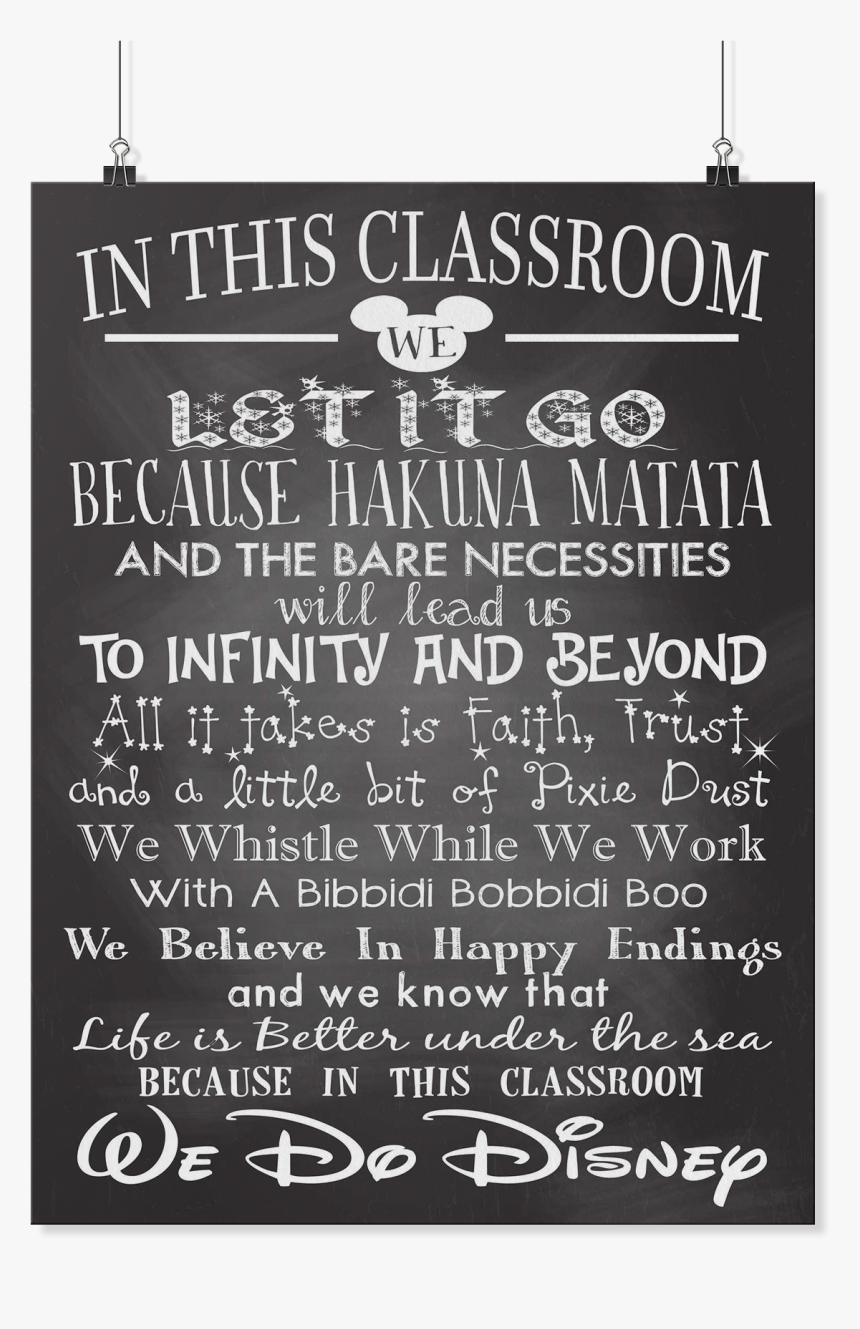 IN THIS CLASSROOM
WE
LET IT GO
BECAUSE HAKUNA MATATA
AND THE BARE NECESSITIES
will lead us
TO INFINITY AND BEYOND
All it takes is Faith, Trust
and a little bit of Pixie Dust
We Whistle While We Work
With A Bibbidi Bobbidi Boo
We Believe In Happy Endings
and we know that
Life is Better under the sea
BECAUSE IN THIS CLASSROOM
We Do Disney